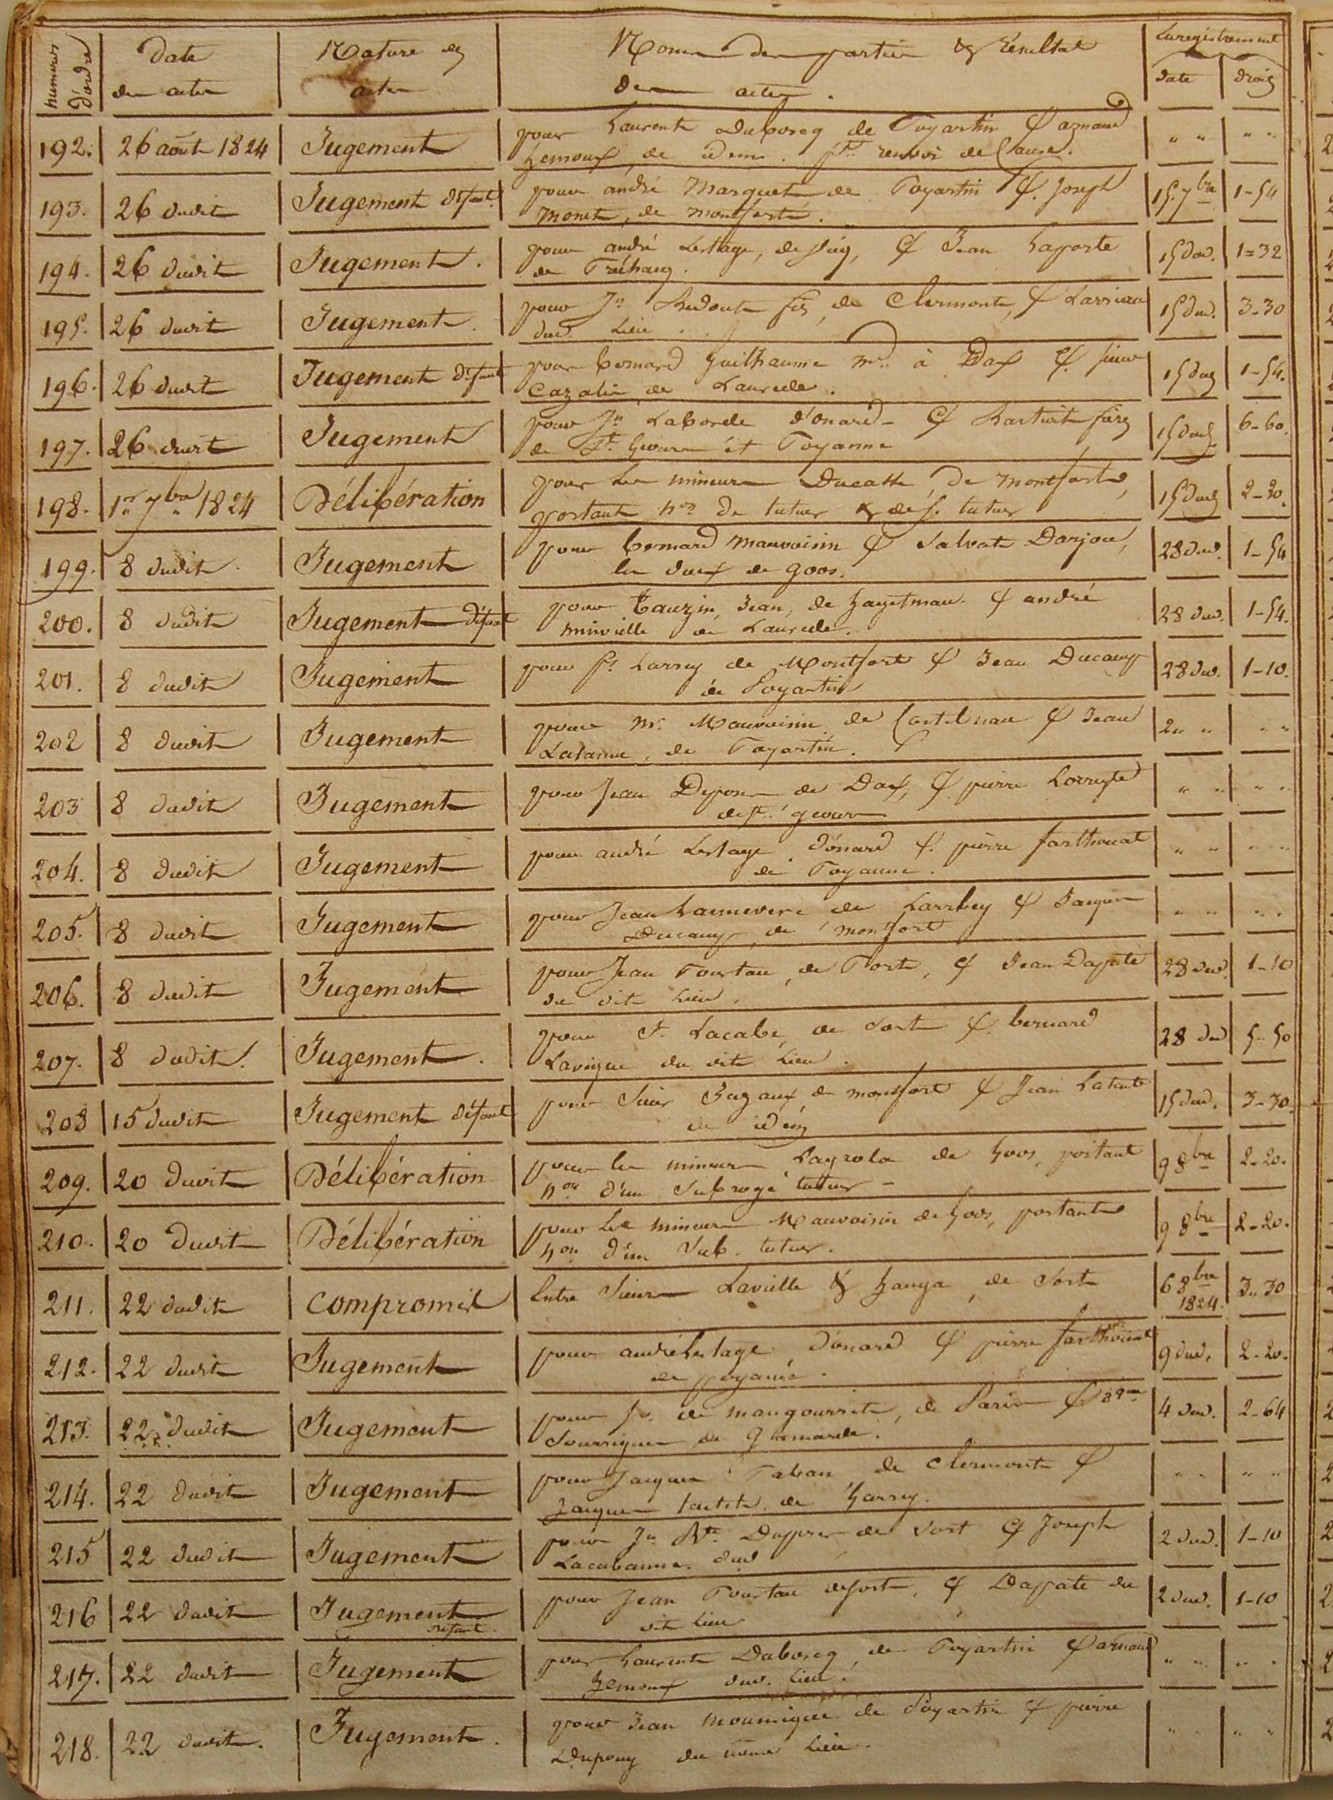 numeros d'ordre | Date des actes | Nature des actes | Noms des parties & résultat des actes. | Enregistrement date | droits
192. | 26 août 1824 | Jugement | pour Laurent Duboscq de Poyartin C/ arnaud
Lemoux, de idem. pt. renvoi de Cause. | " " | " "
193. | 26 dudit | Jugement défaut | pour andré Marquet de Poyartin C/ Joseph
Monet, de montfort. | 15. 7bre | 1-54
194. | 26 dudit | Jugement. | pour andré Lestage, de C/ Jean Laporte
de | 15 dud. | 1=32
195. | 26 dudit | Jugement. | pour Jn. fils, de Clermont, C/ Larrieu
dud. Lieu | 15 dud. | 3-30
196. | 26 dudit | Jugement défaut | pour bernard Guilhaume md. à Dax C/ sieur
Cazalis de Laurede. | 15 dud | 1-54.
197. | 26 dudit | Jugement | pour Jn. Laborde d'onard - C/ fils
de St. Geours et Poyanne | 15 dud | 6-60.
198. | 1er 7bre 1824 | Délibération | pour Les mineurs Ducasse, de Montfort,
portant non. de tuteur & de s. tuteur | 15 dud | 2-20.
199. | 8 dudit | Jugement | pour bernard mauvoisin C/ Salvat Darjou,
les deux de goos. | 28 dud. | 1-54
200. | 8 dudit | Jugement défaut | pour Tauzin Jean, de hagetmau. C/ andré
minvielle de Laurede. | 28 dud. | 1-54.
201. | 8 dudit | Jugement | pour Larrey de Montfort C/ Jean Ducamp
de Poyartin | 28 dud. | 1-10.
202 | 8 dudit | Jugement | pour Mr. Mauvoisin de Castelnau C/ Jean
Lalanne, de Poyartin. | " " | " "
203 | 8 dudit | Jugement | pour Jean de Dax, C/ pierre
de st. geours | " " | " "
204. | 8 dudit | Jugement | pour andré Lestage d'onard C/. pierre farthouat
de Poyanne. | " " | " "
205. | 8 dudit | Jugement | pour Jean Lannevere de Larrbey C/ Jacques
Ducamp, de montfort | " " | " "
206. | 8 dudit | Jugement | pour Jean Tourtau, de Sort, C/ Jean Daspate
du dit Lieu. | 28 dud | 1-10
207. | 8 dudit. | Jugement. | pour Lacabe, de Sort C/. bernard
Lavigne du dit Lieu. | 28 dud | 5-50
208 | 15 dudit | Jugement défaut | pour Sieur de montfort C/ Jean
de idem | 15 dud. | 3-30.
209. | 20 dudit | Délibération | pour les mineurs Layrola de Goos, portant
non d'un Subrogé tuteur - | 9 8bre | 2-20.
210. | 20 dudit | Délibération | pour Les mineurs Mauvoisin de Goos, portant
non d'un Sub. tuteur. | 9 8bre | 2-20.
211. | 22 dudit | Compromis | Entre Sieurs Laville & de Sort | 6 8bre 1824. | 3-30
212. | 22 dudit | Jugement | pour andré Lestage d'onard C/ pierre farthouat
de poyanne. | 9 dud. | 2-20.
213. | 22 dudit | Jugement | pour de de Paris C/
de | 4 dud. | 2-64
214. | 22 dudit | Jugement | pour Jacques Taban de Clermont C/
Jacques de Garrey. | " " | " "
215 | 22 dudit | Jugement | pour Jn. Bte. de Sort C/ Joseph
Lacabanne dud | 2 dud. | 1-10
216 | 22 dudit | Jugement défaut | pour Jean Tourtau de Sort, C/ Daspate du
dit Lieu | 2 dud. | 1-10
217. | 22 dudit | Jugement | pour Laurent Duboscq, de Poyartin C/ arnaud
Lemoux dud. Lieu. | " " | " "
218. | 22 dudit. | Jugement. | pour Jean de Poyartin C/ pierre
Dupouy du même Lieu. | " " | " "